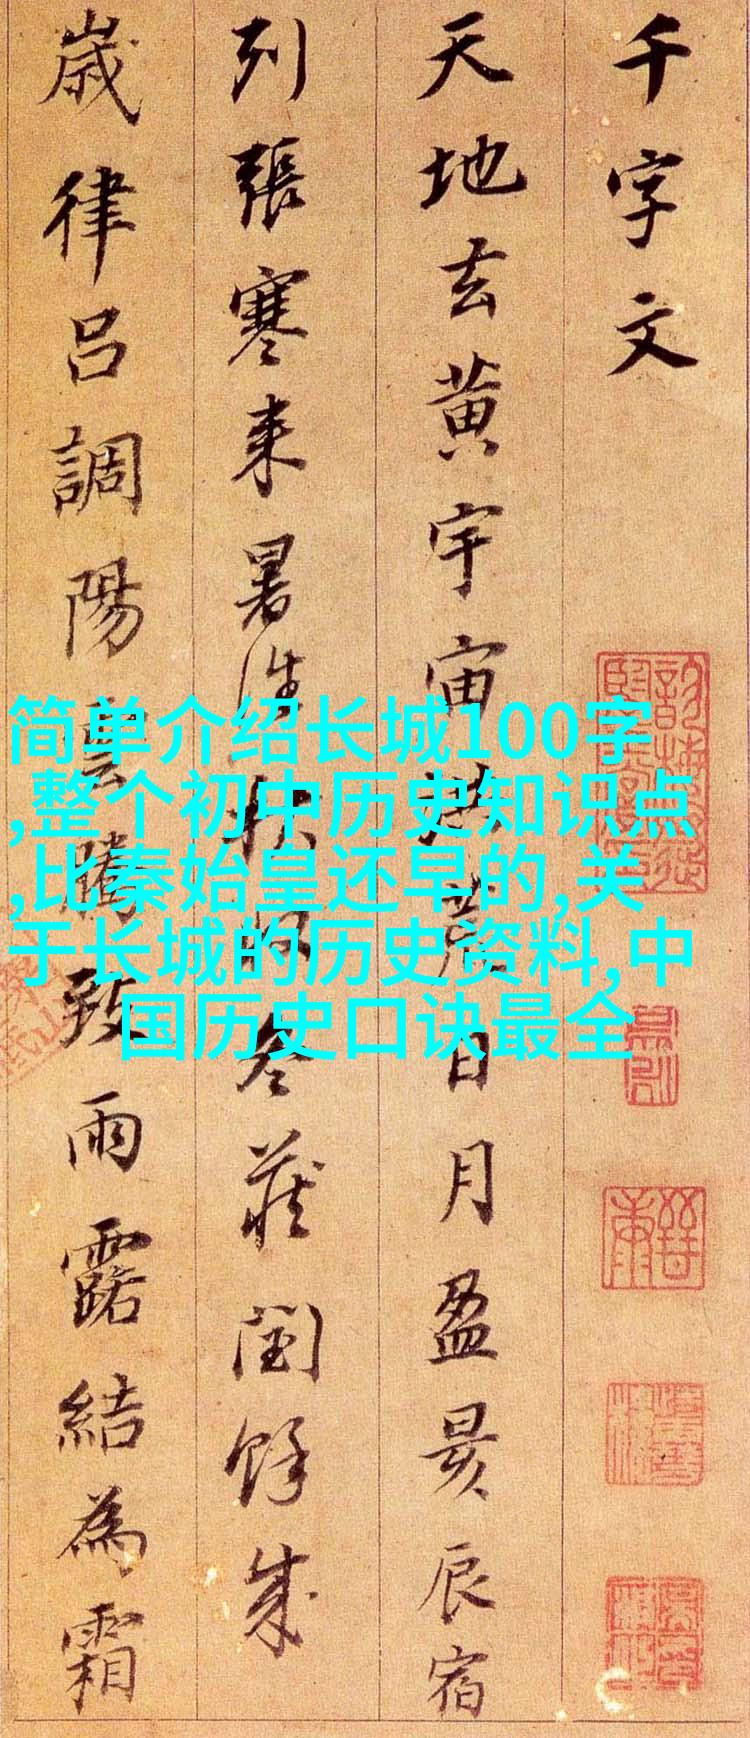 千字文
天地玄黄宇宙洪荒日月盈昃辰宿
列張寒来暑往秋收冬蔵閏餘成
歳律吕調陽雲騰致雨露結為霜
简单介绍长城100字
,整个初中历史知识点
,比秦始皇还早的,关
于长城的历史资料,中
国历史口诀最全